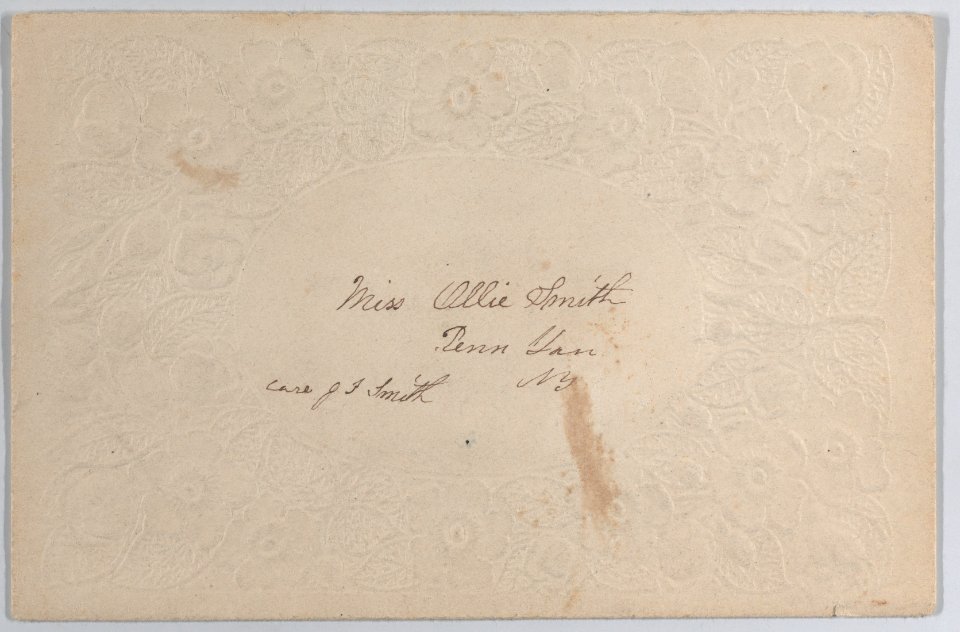 Miss Ollie Smith
Penn Yan
care J F Smith NY